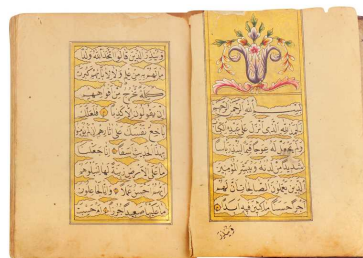 بسم الله الرحمن الرحيم
الحمد لله الذي انزل على عبده الكتا
ب ولم يجعل له عوجا قيما لينذر باسا
شديدا من لدنه ويبشر المؤمنين
الذين يعملون الصالحات ان لهم
اجرا حسنا ماكثين فيه ابدا
وينذر
وينذر الذين قالوا اتخذ الله ولدا
ما لهم به من علم ولا لابائهم كبرت
كلمة تخرج من افواههم
ان يقولون الا كذبا فلعلك
باخع نفسك على اثارهم ان لم يؤمنوا
بهذا الحديث اسفا انا جعلنا
ما على الارض زينة لها لنبلوهم
ايهم احسن عملا وانا لجاعلون
ما عليها صعيدا جرزا ام حسبت